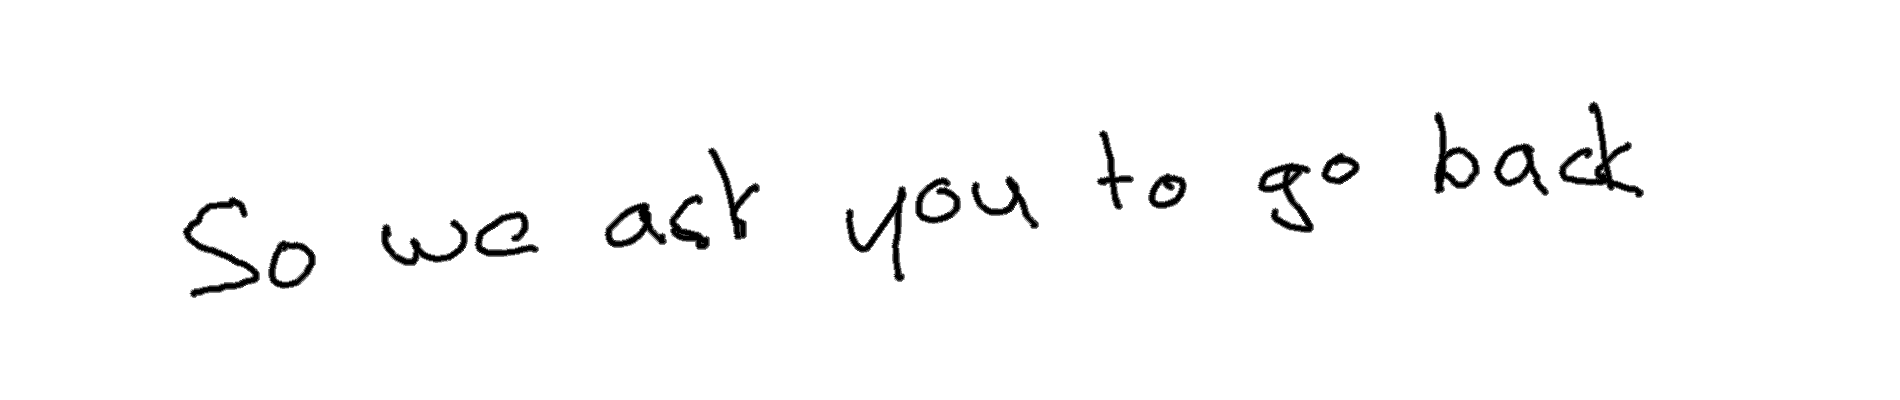 So we ask you to go back